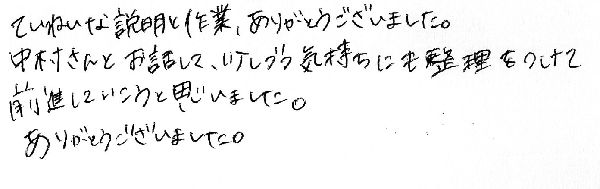 ていねいな説明と作業、ありがとうございました。
中村さんとお話して、いろいろ気持ちにも整理をつけて
前進していこうと思いました。
ありがとうございました。